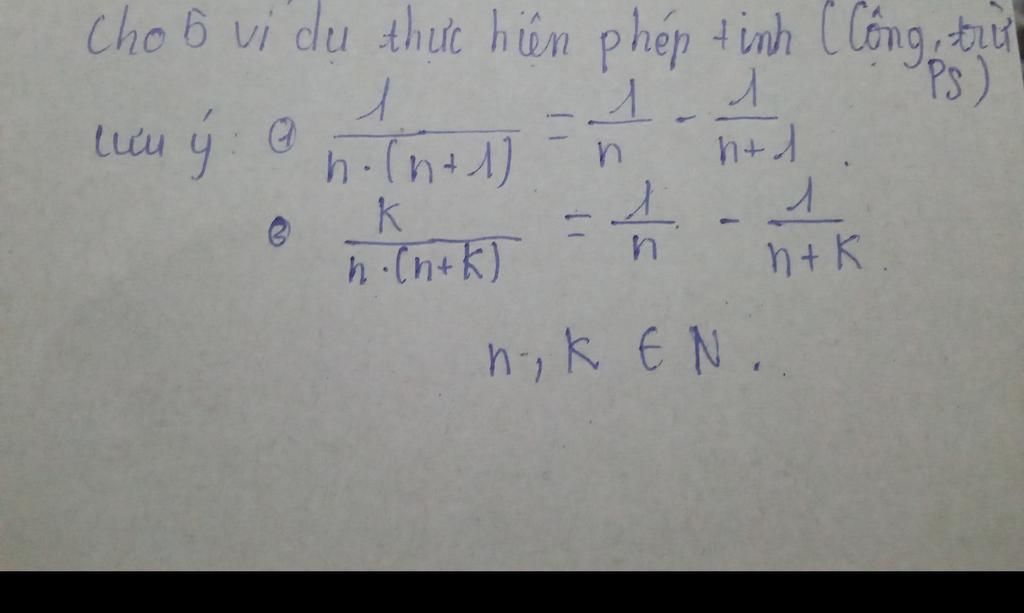 Cho 5 ví dụ thực hiện phép tính (Cộng, trừ PS)
Lưu ý: ① 1/(n·(n+1)) = 1/n - 1/(n+1).
② k/(n·(n+k)) = 1/n - 1/(n+k).
n, k ∈ N.